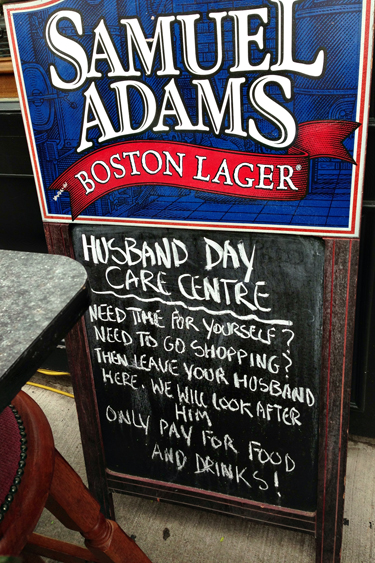 SAMUEL
ADAMS
BOSTON LAGER®
HUSBAND DAY
CARE CENTRE
NEED TIME FOR YOURSELF?
NEED TO GO SHOPPING?
THEN LEAVE YOUR HUSBAND
HERE. WE WILL LOOK AFTER
HIM
ONLY PAY FOR FOOD
AND DRINKS!